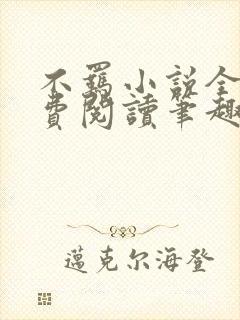 不羁小说全
費閱讀筆趣
邁克尔海登